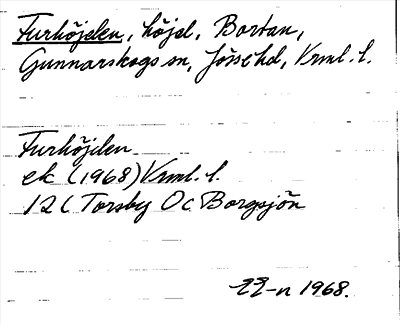 Furhöjden, höjd, Bortan,
Gunnarskogs sn, Jösse hd, Vrml. l.
Furhöjden
ek (1968) Vrml. l.
12C Torsby Oc Borgsjön
-n 1968.